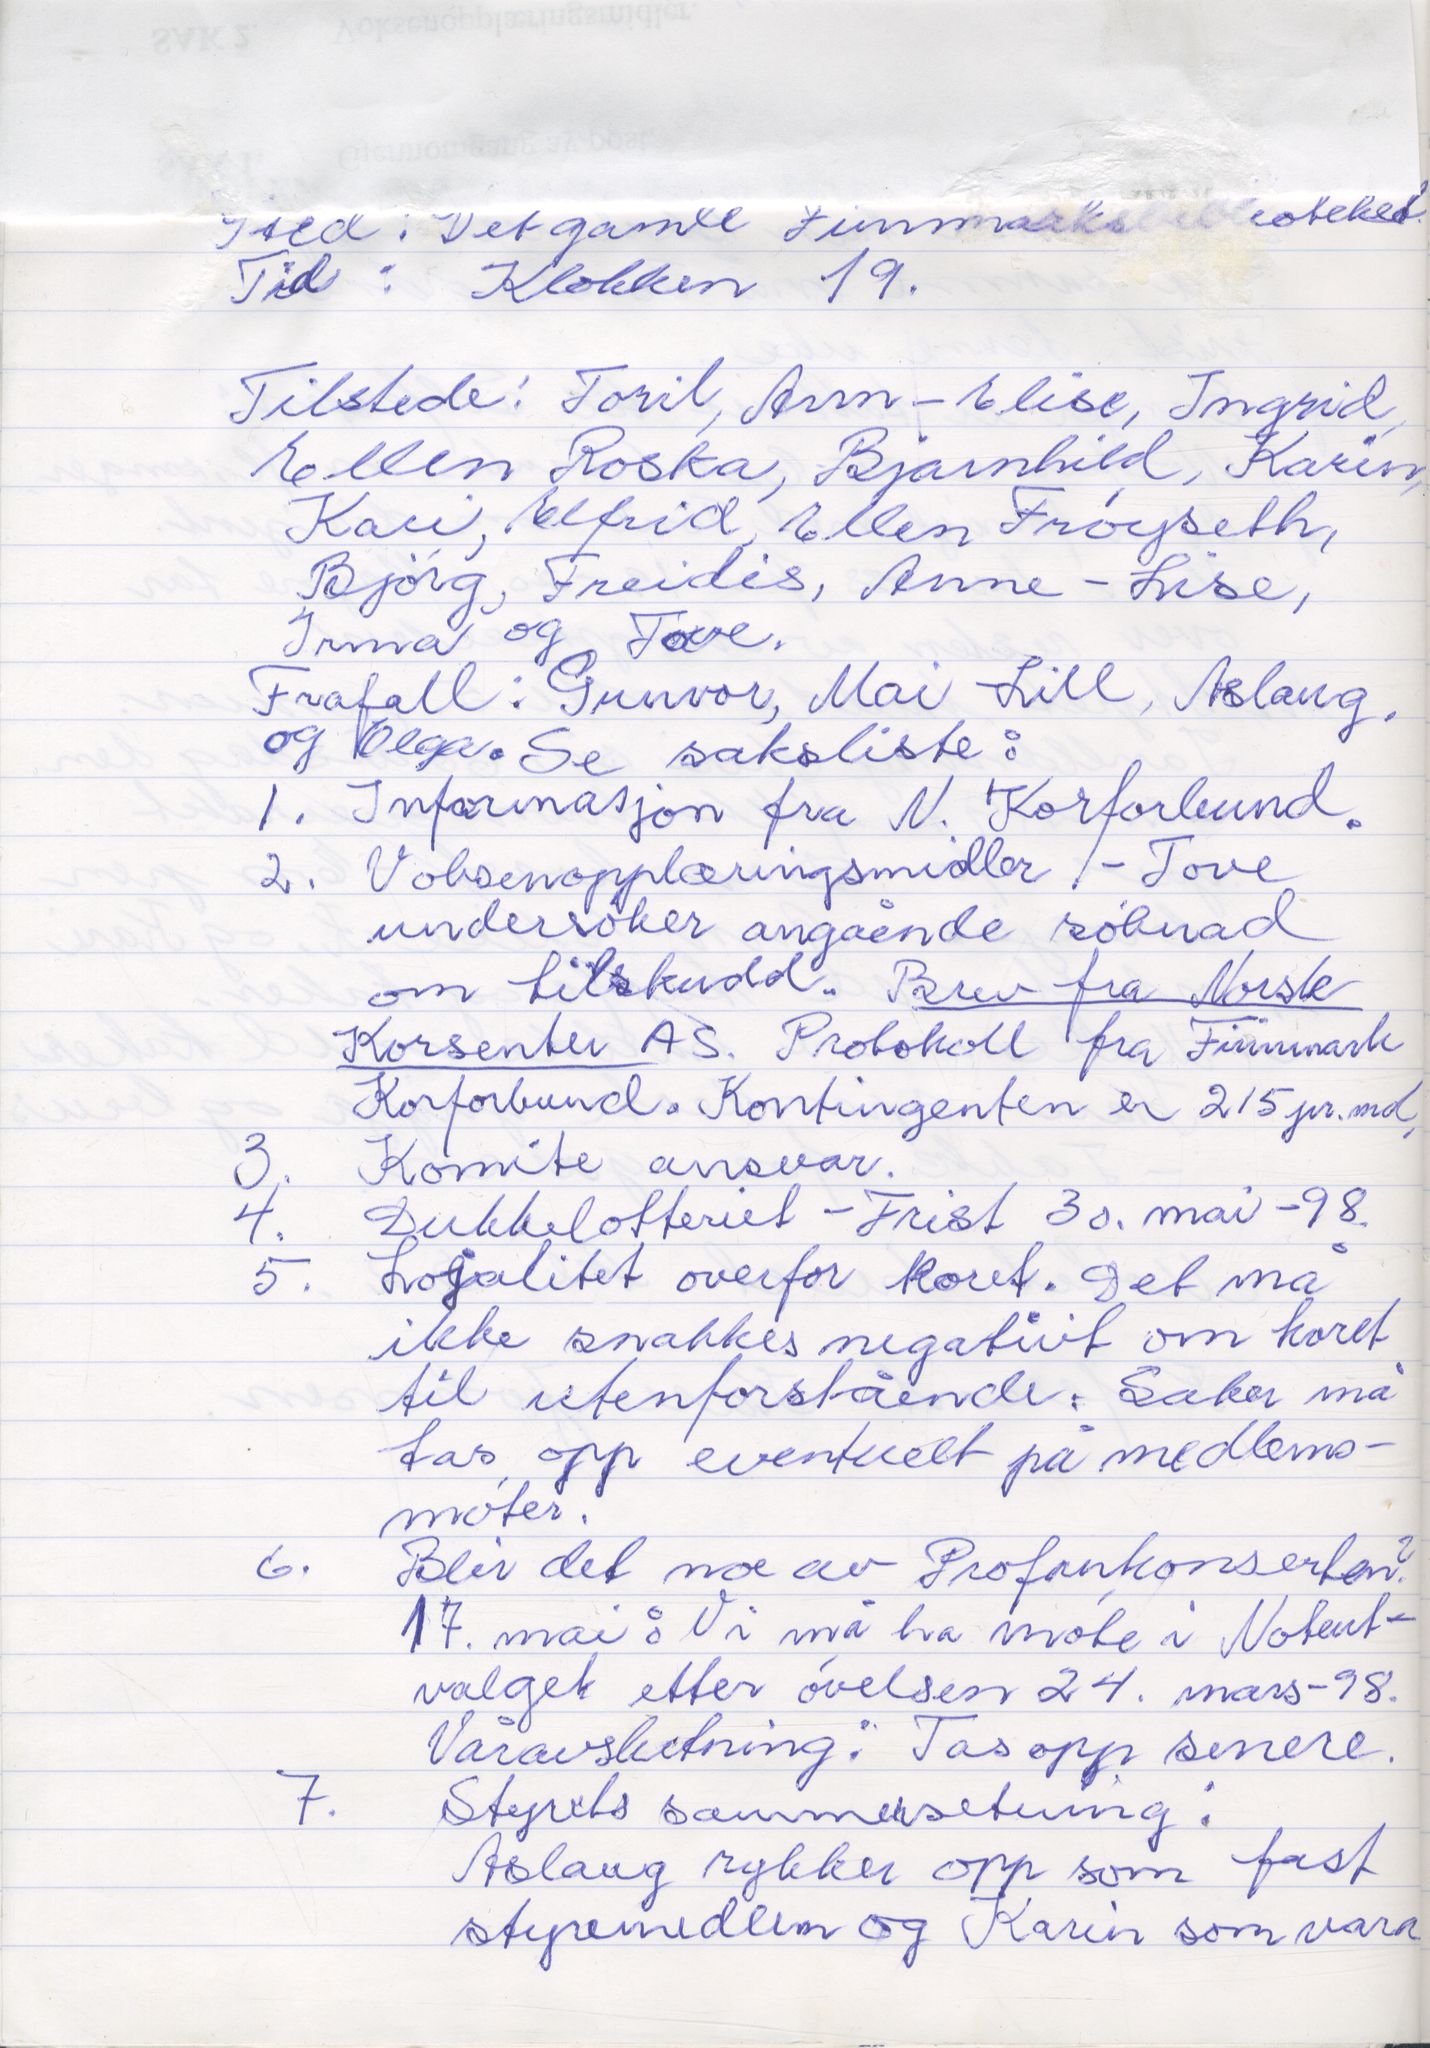 SAK 2. Voksenopplæringsmidler.
SAK 1. Gjennomgang av post
Sted : Det gamle Finnmarksbiblioteket.
Tid : Klokken 19.
Tilstede : Toril, Ann-Elise, Ingrid,
Ellen Roska, Bjarnhild, Karin,
Kari, Elfrid, Ellen Frøyseth,
Bjørg, Freidis, Anne-Lise,
Irma og Tove.
Frafall : Gunvor, Mai-Lill, Aslaug.
og Olga. Se saksliste :
1. Informasjon fra N. Korforbund.
2. Voksenopplæringsmidler - Tove
undersøker angående søknad
om tilskudd. Brev fra Norsk
Korsenter AS. Protokoll fra Finnmark
Korforbund. Kontingenten er 215 pr. md,
3. Komite ansvar.
4. Dukkelotteriet - Frist 30. mai -98.
5. Lojalitet overfor koret. Det må
ikke snakkes negativt om koret
til utenforstående. Saker må
tas opp eventuelt på medlems-
møter.
6. Blir det noe av Profankonserten?
17. mai : Vi må ha møte i Noteut-
valget etter øvelsen 24. mars-98.
Våravslutning : Tas opp senere.
7. Styrets sammensetning :
Aslaug rykker opp som fast
styremedlem og Karin som vara